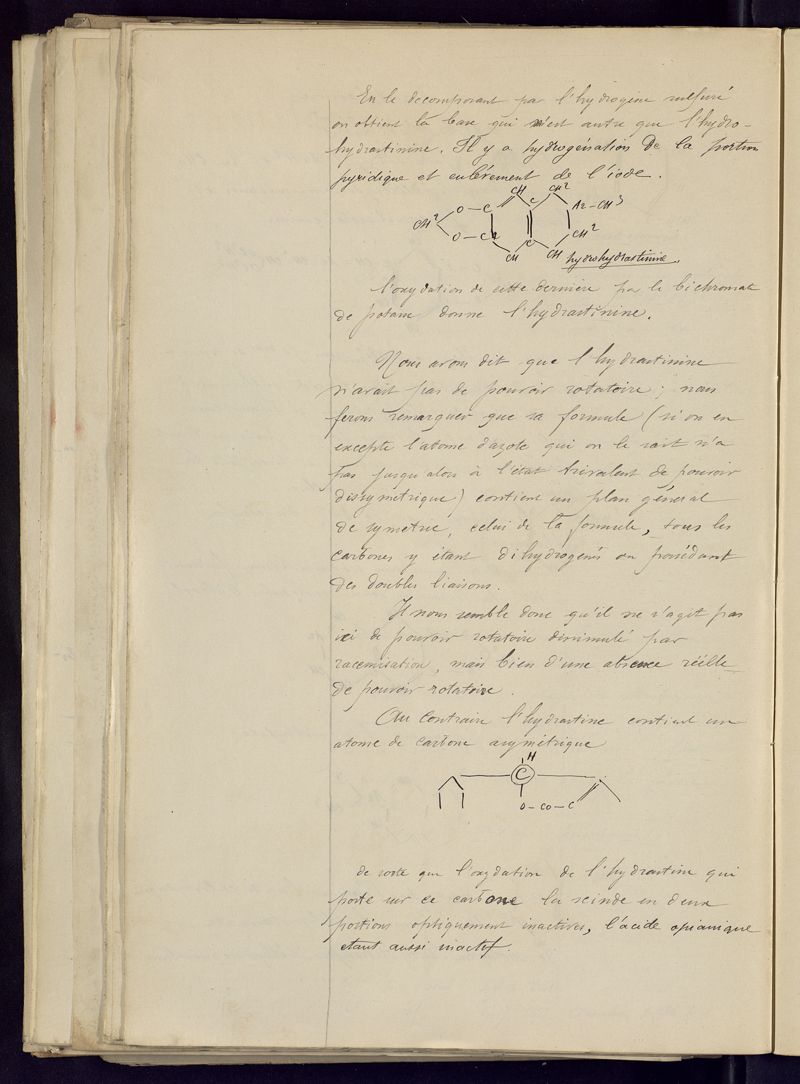 En le décomposant par l'hydrogène sulfuré
on obtient la base qui n'est autre que l'hydro-
hydrastinine. Il y a hydrogénation de la portion
pyridique et enlèvement de l'iode.
CH C CH²
O - C Az - CH³
CH²
O - C C CH²
CH CH hydrohydrastinine.
l'oxydation de cette dernière par le bichromate
de potasse donne l'hydrastinine.
Nous avons dit que l'hydrastinine
n'avait pas de pouvoir rotatoire ; nous
ferons remarquer que sa formule (si on en
excepte l'atome d'azote qui on le sait n'a
pas jusqu'alors à l'état trivalent de pouvoir
dissymétrique) contient un plan général
de symetrie, celui de la formule, tous les
carbones y étant dihydrogénés ou possédant
des doubles liaisons.
Il nous semble donc qu'il ne s'agit pas
ici de pouvoir rotatoire dissimulé par
racemisation, mais bien d'une absence réelle
de pouvoir rotatoire.
Au contraire l'hydrastine contient un
atome de carbone asymétrique
H
C
O - CO - C
de sorte que l'oxydation de l'hydrastine qui
porte sur ce carbone la scinde en deux
portions optiquement inactives, l'acide opianique
etant aussi inactif.